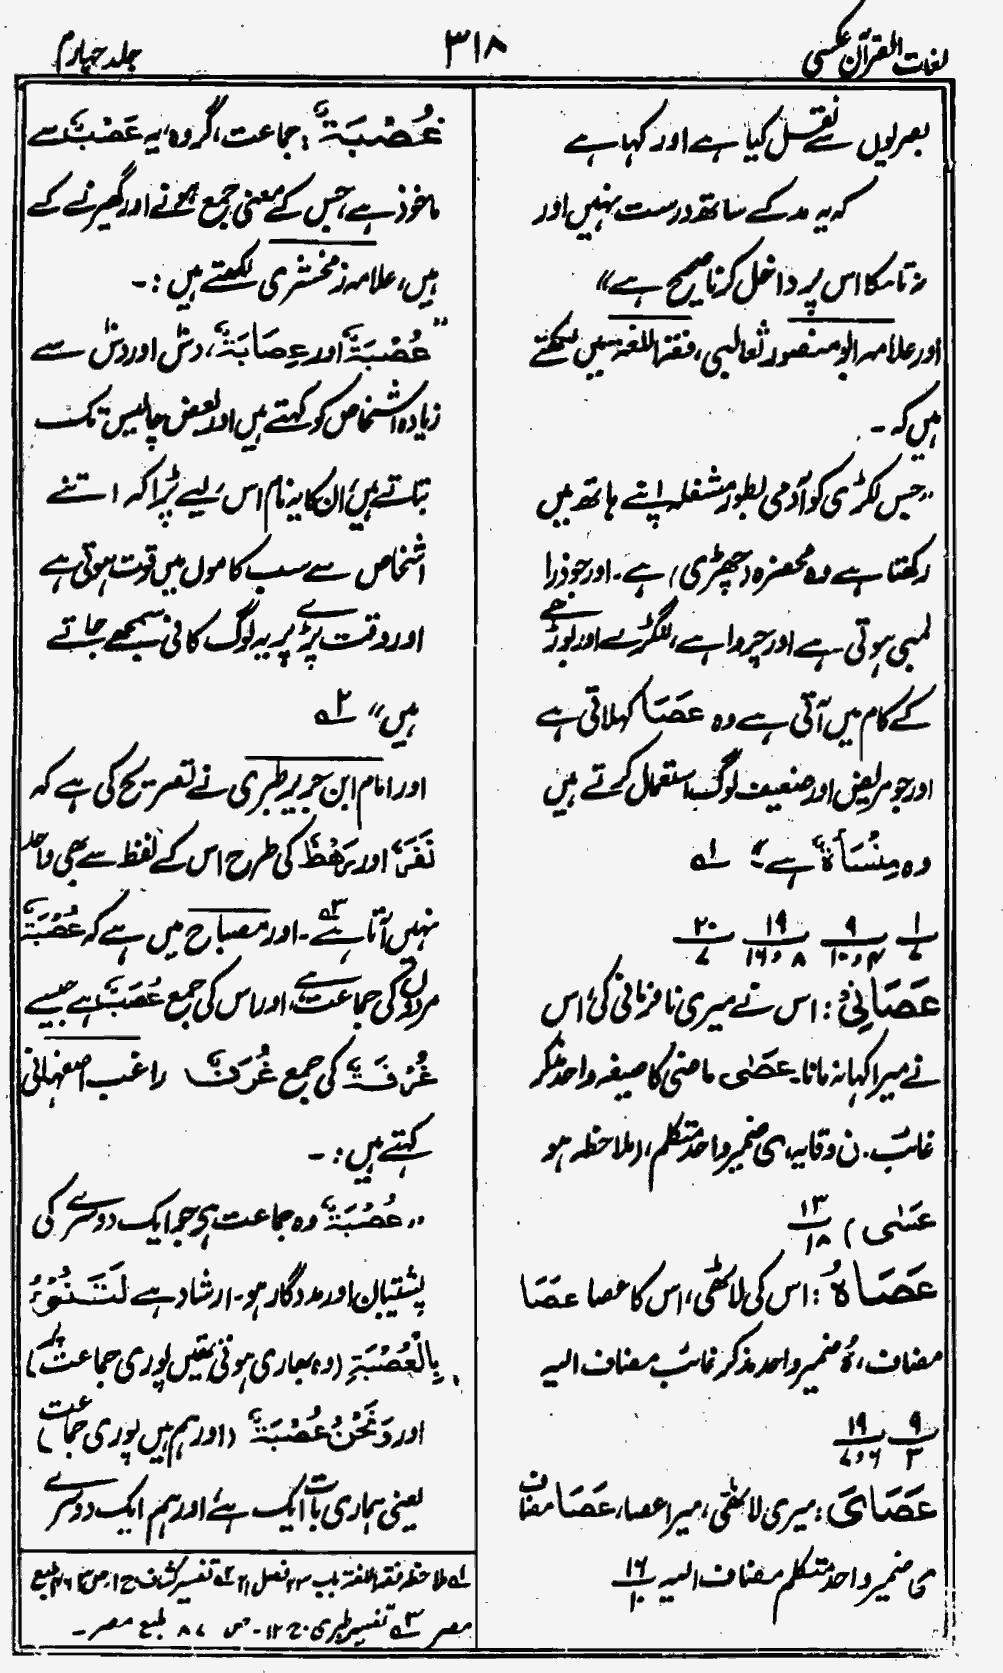 لغات القرآن عکسی
۳۱۸
جلد چہارم
بصریوں سے نقل کیا ہے اور کہا ہے
کہ یہ مد کے ساتھ درست نہیں اور
نہ تا کا اس پر داخل کرنا صحیح ہے“
اور علامہ ابو منصور ثعالبی، فقہ اللغۃ میں لکھتے
ہیں کہ ۔
”جس لکڑی کو آدمی بطور مشغلہ اپنے ہاتھ میں
رکھتا ہے وہ مخصرہ (چھڑی) ہے۔ اور جو ذرا
لمبی ہوتی ہے اور چرواہے، لنگڑے اور بوڑھے
کے کام میں آتی ہے وہ عَصَا کہلاتی ہے
اور جو مریض اور ضعیف لوگ استعمال کرتے ہیں
وہ مِنْسَأَۃٌ ہے“ ۱؎
۱/۷ ۹/۴و۱۰ ۱۹/۸و۱۶ ۲۰/۷
عَصَانِیْ: اس نے میری نافرمانی کی، اس
نے میرا کہا نہ مانا۔ عَصٰی ماضی کا صیغہ واحد مذکر
غائب۔ ن وقایہ، ی ضمیر واحد متکلم، (ملاحظہ ہو
عَسٰی) ۱۳/۱۸
عَصَاہُ: اس کی لاٹھی، اس کا عصا عَصَا
مضاف، ہُ ضمیر واحد مذکر غائب مضاف الیہ
۹/۳ ۱۹/۶و۷
عَصَایَ: میری لاٹھی، میرا عصا، عَصَا مضاف
ی ضمیر واحد متکلم مضاف الیہ ۱۶/۱۰
عُصْبَۃٌ: جماعت، گروہ، یہ عَصْبٌ سے
ماخوذ ہے، جس کے معنی جمع ہونے اور گھیرنے کے
ہیں، علامہ زمخشری لکھتے ہیں :۔
”عُصْبَۃٌ اور عِصَابَۃٌ، دس اور دس سے
زیادہ اشخاص کو کہتے ہیں اور بعض چالیس تک
بتاتے ہیں، ان کا یہ نام اس لیے پڑا کہ اتنے
اشخاص سے سب کاموں میں قوت ہوتی ہے
اور وقت پڑے پر یہ لوگ کافی سمجھے جاتے
ہیں“ ۲؎
اور امام ابن جریر طبری نے تصریح کی ہے کہ
نَفَرٌ اور رَہْطٌ کی طرح اس کے لفظ سے بھی واحد
نہیں آتا ہے ۳؎۔ اور مصباح میں ہے کہ عُصْبَۃٌ
مردوں کی جماعت ہے، اور اس کی جمع عُصَبٌ ہے جیسے
غُرْفَۃٌ کی جمع غُرَفٌ راغب اصفہانی
کہتے ہیں :۔
”عُصْبَۃٌ وہ جماعت ہے جو ایک دوسرے کی
پشتیبان اور مددگار ہو۔ ارشاد ہے لَتَنُوْءُ
بِالْعُصْبَۃِ (وہ بھاری ہوتی تھیں پوری جماعت پر)
اور وَنَحْنُ عُصْبَۃٌ (اور ہم ہیں پوری جماعت)
یعنی ہماری بات ایک ہے، اور ہم ایک دوسرے
۱؎ ملاحظہ فقہ اللغۃ باب ۲۳ فصل ۲۱ ۲؎ تفسیر کشاف ج ۱ ص طبع
مصر ۳؎ تفسیر طبری ج ۱۲۔ ص ۸۷ طبع مصر۔